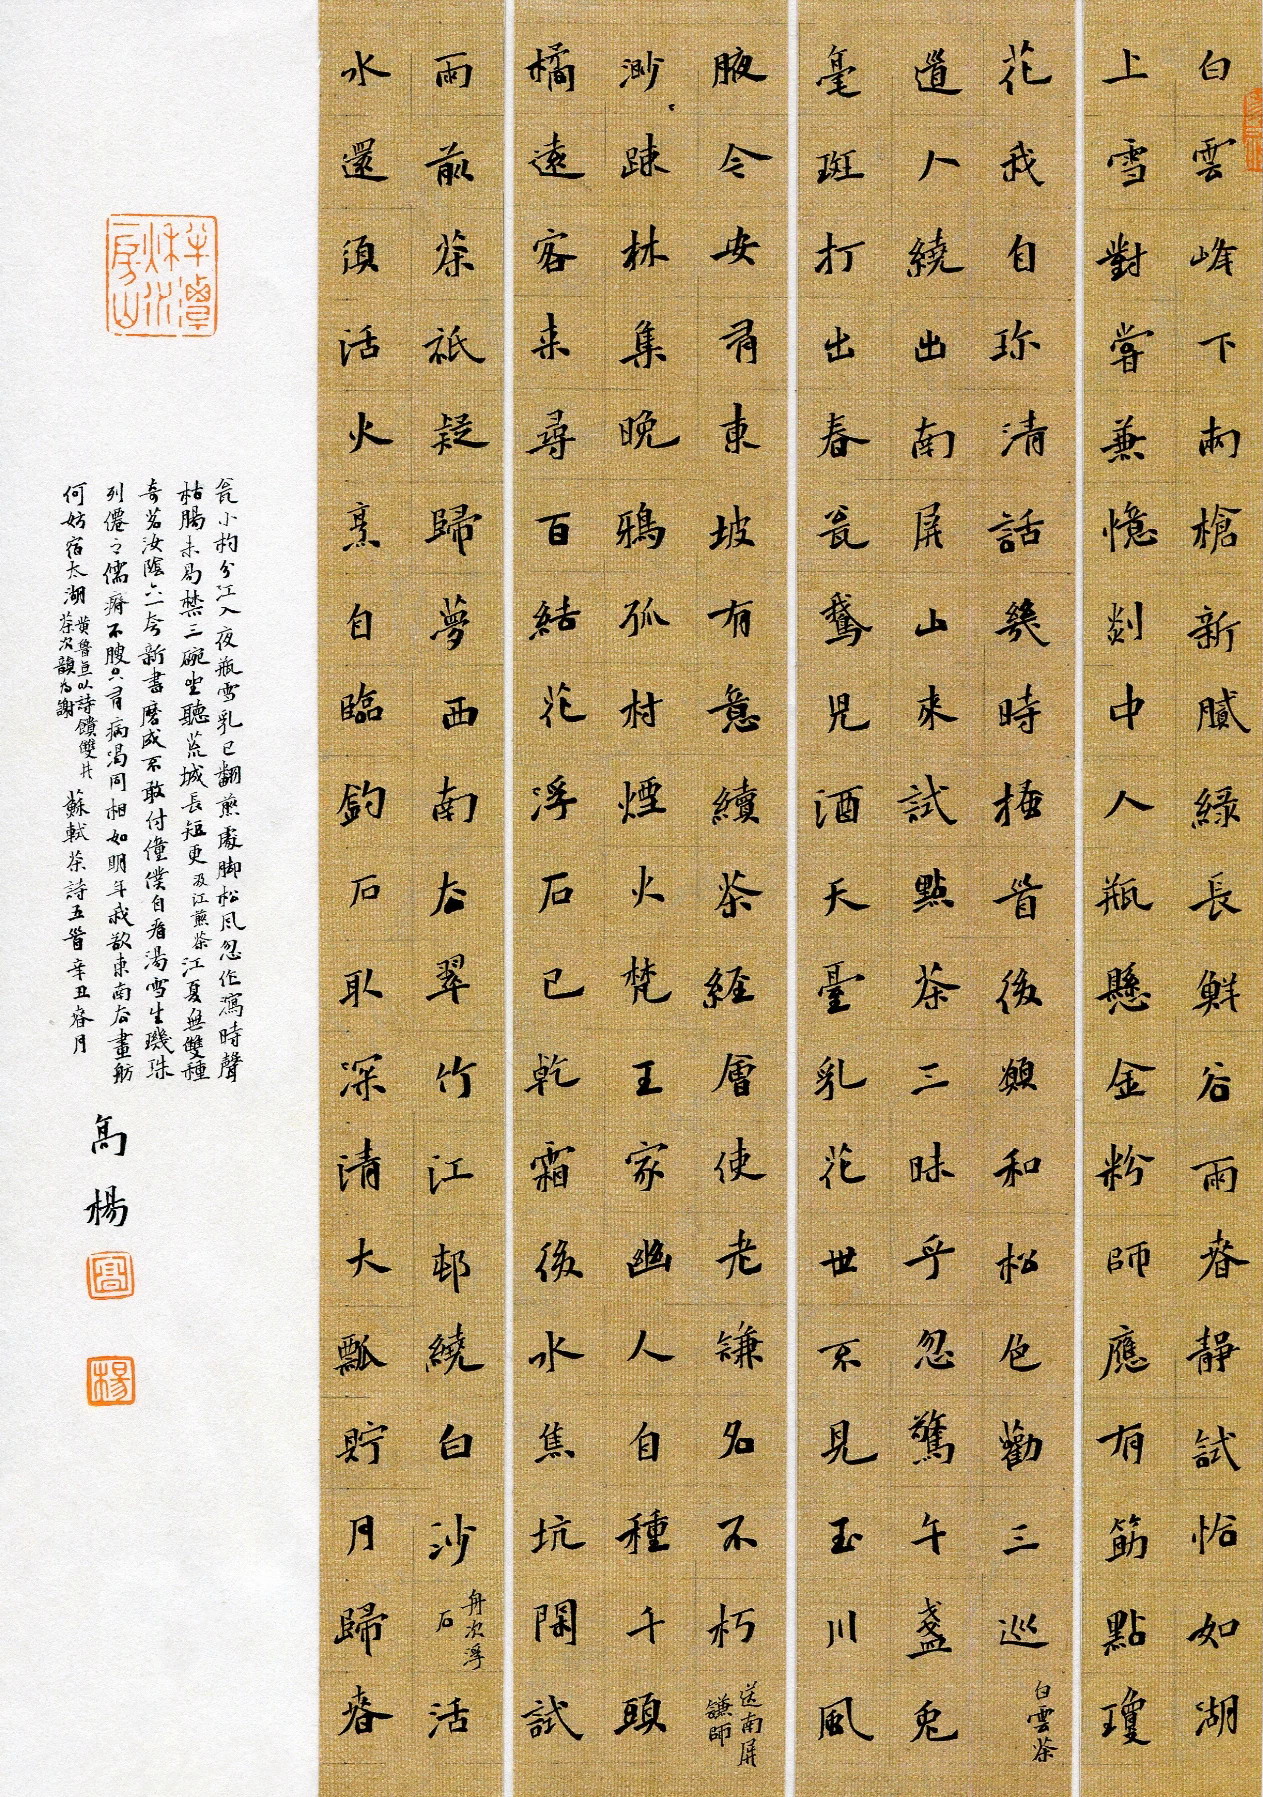 白雲峰下兩槍新膩綠長鮮谷雨春靜試恰如湖
上雪對嘗兼憶剡中人瓶懸金粉師應有筋點瓊
花我自珎清話幾時搔首後願和松色勸三巡白雲茶
道人繞出南屏山來試點茶三昧乎忽驚午盞兔
毫斑打出春瓮鵞兒酒天臺乳花世不見玉川風
腋今安有東坡有意續茶經會使老謙名不朽送南屏謙師
渺踈林集晚鴉孤村煙火梵王家幽人自種千頭
橘遠客來尋百結花浮石已乾霜後水焦坑閑試
雨前茶祇疑歸夢西南去翠竹江邨繞白沙舟次浮石活
水還須活火烹自臨釣石取深清大瓢貯月歸春
瓮小杓分江入夜瓶雪乳已翻煎處脚松風忽作瀉時聲
枯腸未易禁三碗坐聽荒城長短更汲江煎茶江夏無雙種
奇茗汝陰六一夸新書磨成不敢付僮僕自看湯雪生璣珠
列僊之儒瘠不腴只有病渴同相如明年我欲東南去畫舫
何妨宿太湖黃魯直以詩饋雙井茶次韻為謝蘇軾茶詩五首辛丑春月
高楊
高
楊
半潭秋水一房山